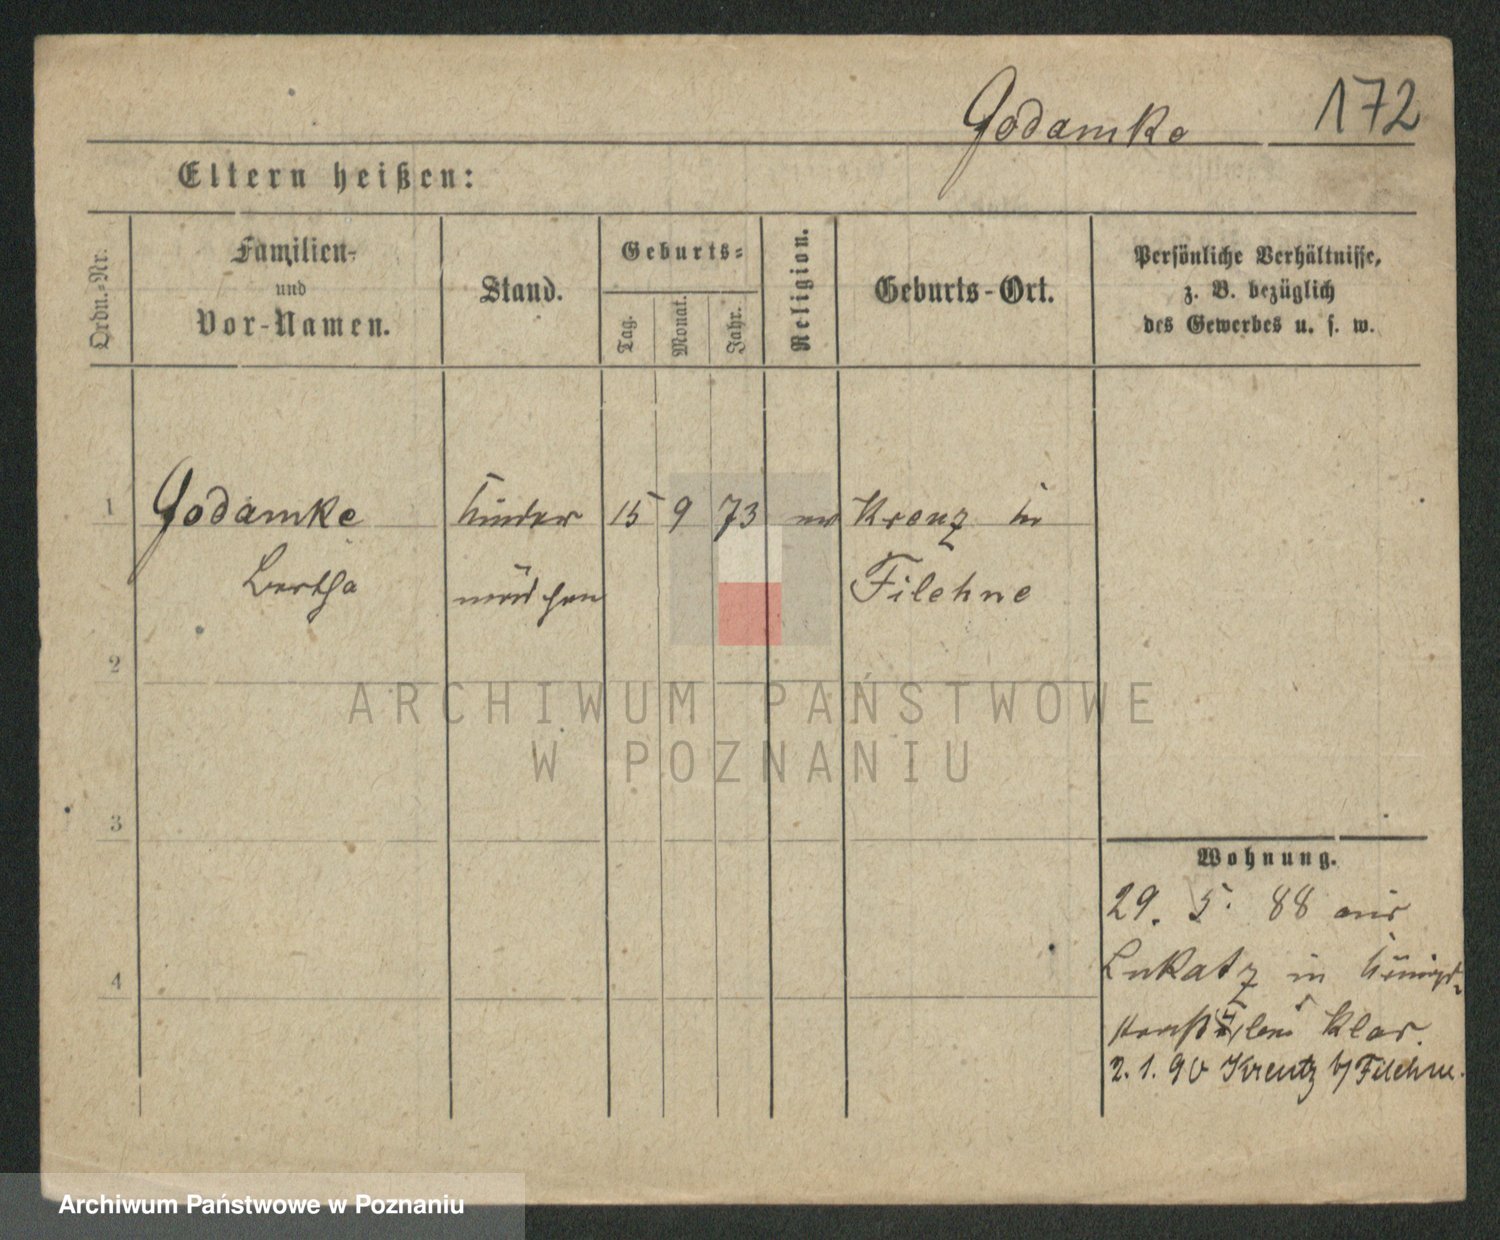 Godamke 172
Eltern heißen:
Ordn.-Nr.
Familien-
und
Vor-Namen.
Stand.
Geburts-
Tag.
Monat.
Jahr.
Religion.
Geburts-Ort.
Persönliche Verhältnisse,
z. B. bezüglich
des Gewerbes u. s. w.
1 Godamke Kinder 15 9 73 ev Kreuz in
Bertha mädchen Filehne
2
ARCHIWUM PAŃSTWOWE
W POZNANIU
3
Wohnung.
29. 5. 88 aus
Lukatz in Königs-
4
Klar.
2. 1. 90 Kreutz b/ Filehne.
Archiwum Państwowe w Poznaniu